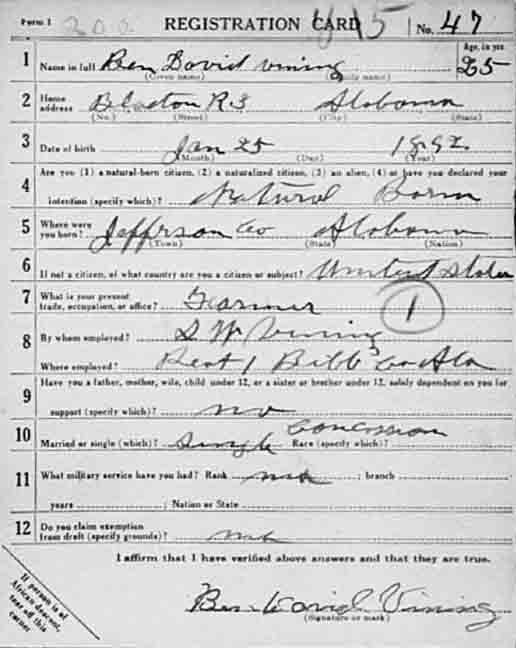 Form 1 200 REGISTRATION CARD 415 No. 47
1 Name in full Ben David Vining Age, in yrs. 25
(Given name) (Family name)
2 Home address Blocton R3 Alabama
(No.) (Street) (City) (State)
3 Date of birth Jan 25 1892
(Month) (Day) (Year)
4 Are you (1) a natural-born citizen, (2) a naturalized citizen, (3) an alien, (4) or have you declared your
intention (specify which)? Natural Born
5 Where were you born? Jeffrson Co Alabama
(Town) (State) (Nation)
6 If not a citizen, of what country are you a citizen or subject? United States
7 What is your present trade, occupation, or office? Farmer 1
8 By whom employed? S W Vining
Where employed? Beat 1 Bibb Co Ala
9 Have you a father, mother, wife, child under 12, or a sister or brother under 12, solely dependent on you for
support (specify which)? no
10 Married or single (which)? Single Race (specify which)?
11 What military service have you had? Rank no ; branch
years ; Nation or State
12 Do you claim exemption from draft (specify grounds)? no
I affirm that I have verified above answers and that they are true.
Ben David Vining
(Signature or mark)
If person is of
African descent,
tear off this
corner